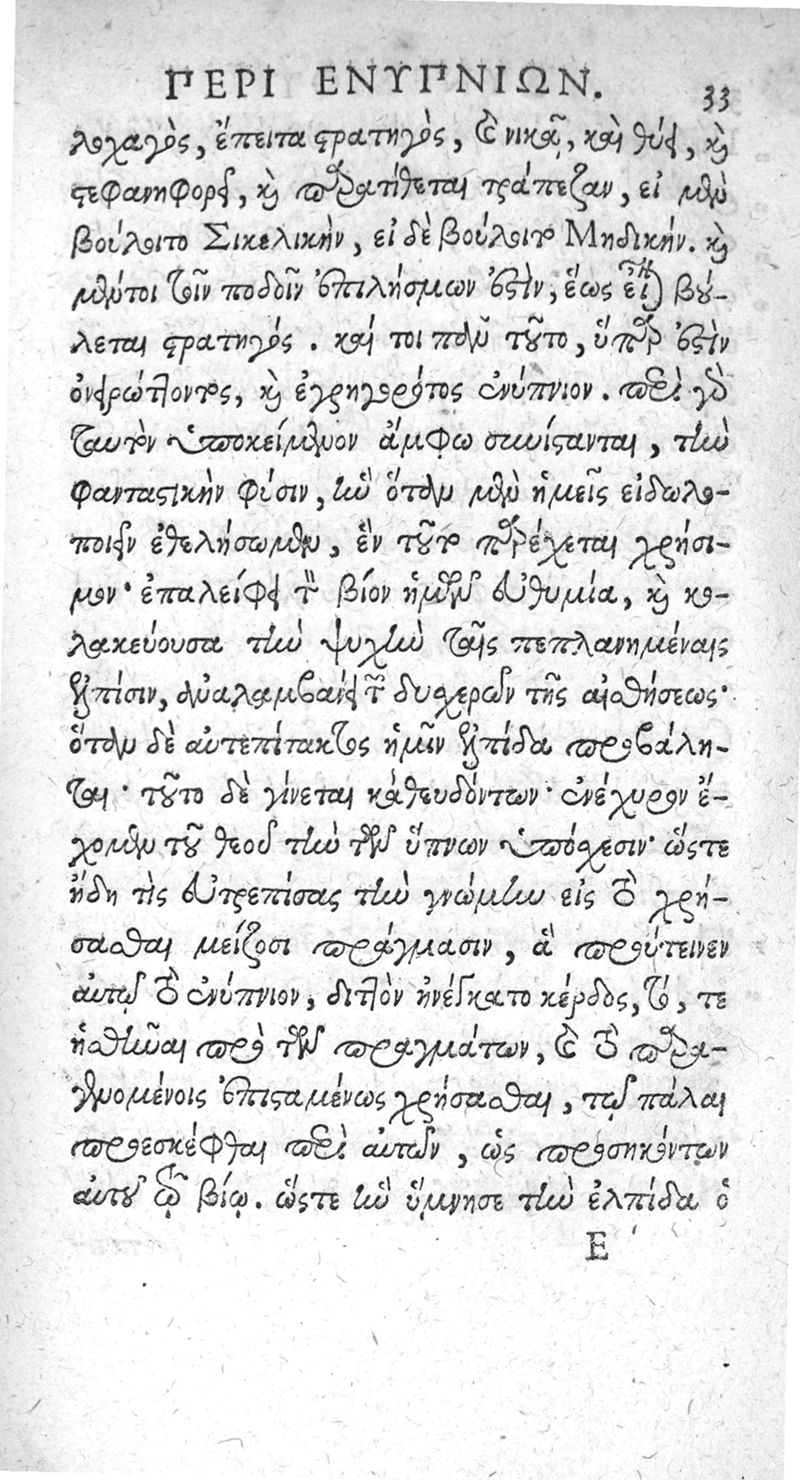 ΠΕΡΙ ΕΝΥΠΝΙΩΝ. 33
λοχαγὸς, ἔπειτα στρατηγὸς, καὶ νικᾷ, καὶ θύει, καὶ
στεφανηφορεῖ, καὶ παρατίθεται τράπεζαν, εἰ μὲν
βούλοιτο Σικελικὴν, εἰ δὲ βούλοιτο Μηδικήν. καὶ
μέντοι τοῖν ποδοῖν ἐπιλήσμων ἐστὶν, ἕως εἶναι βού-
λεται στρατηγός. καί τοι πᾶν τοῦτο, ὕπαρ ἐστὶν
ὀνειρώττοντος, καὶ ἐγρηγορότος ἐνύπνιον. περὶ γὰρ
ταυτὸν ὑποκείμενον ἄμφω συνίστανται, τὴν
φανταστικὴν φύσιν, ἣν ὅταν μὲν ἡμεῖς εἰδωλο-
ποιεῖν ἐθελήσωμεν, ἓν τοῦτο παρέχεται χρήσι-
μον· ἐπαλείφει τὸν βίον ἡμῶν εὐθυμία, καὶ κο-
λακεύουσα τὴν ψυχὴν ταῖς πεπλανημέναις
ἐλπίσιν, ἀναλαμβάνει τῶν δυσχερῶν τῆς αἰσθήσεως·
ὅταν δὲ αὐτεπίτακτος ἡμῖν ἐλπίδα προβάλη-
ται· τοῦτο δὲ γίνεται καθευδόντων· ἐνέχυρον ἔ-
χομεν τοῦ θεοῦ τὴν τῶν ὕπνων ὑπόσχεσιν· ὥστε
ἤδη τὶς εὐτρεπίσας τὴν γνώμην εἰς τὸ χρή-
σασθαι μείζοσι πράγμασιν, ἃ προὔτεινεν
αὐτῷ τὸ ἐνύπνιον, διπλὸν ἠνέγκατο κέρδος, τό, τε
ἡσθῆναι πρὸ τῶν πραγμάτων, καὶ τὸ παρα-
γενομένοις ἐπισταμένως χρήσασθαι, τῷ πάλαι
προεσκέφθαι περὶ αὐτῶν, ὡς προσηκόντων
αὐτοῦ τῷ βίῳ. ὥστε ἣν ὕμνησε τὴν ἐλπίδα ὁ
E